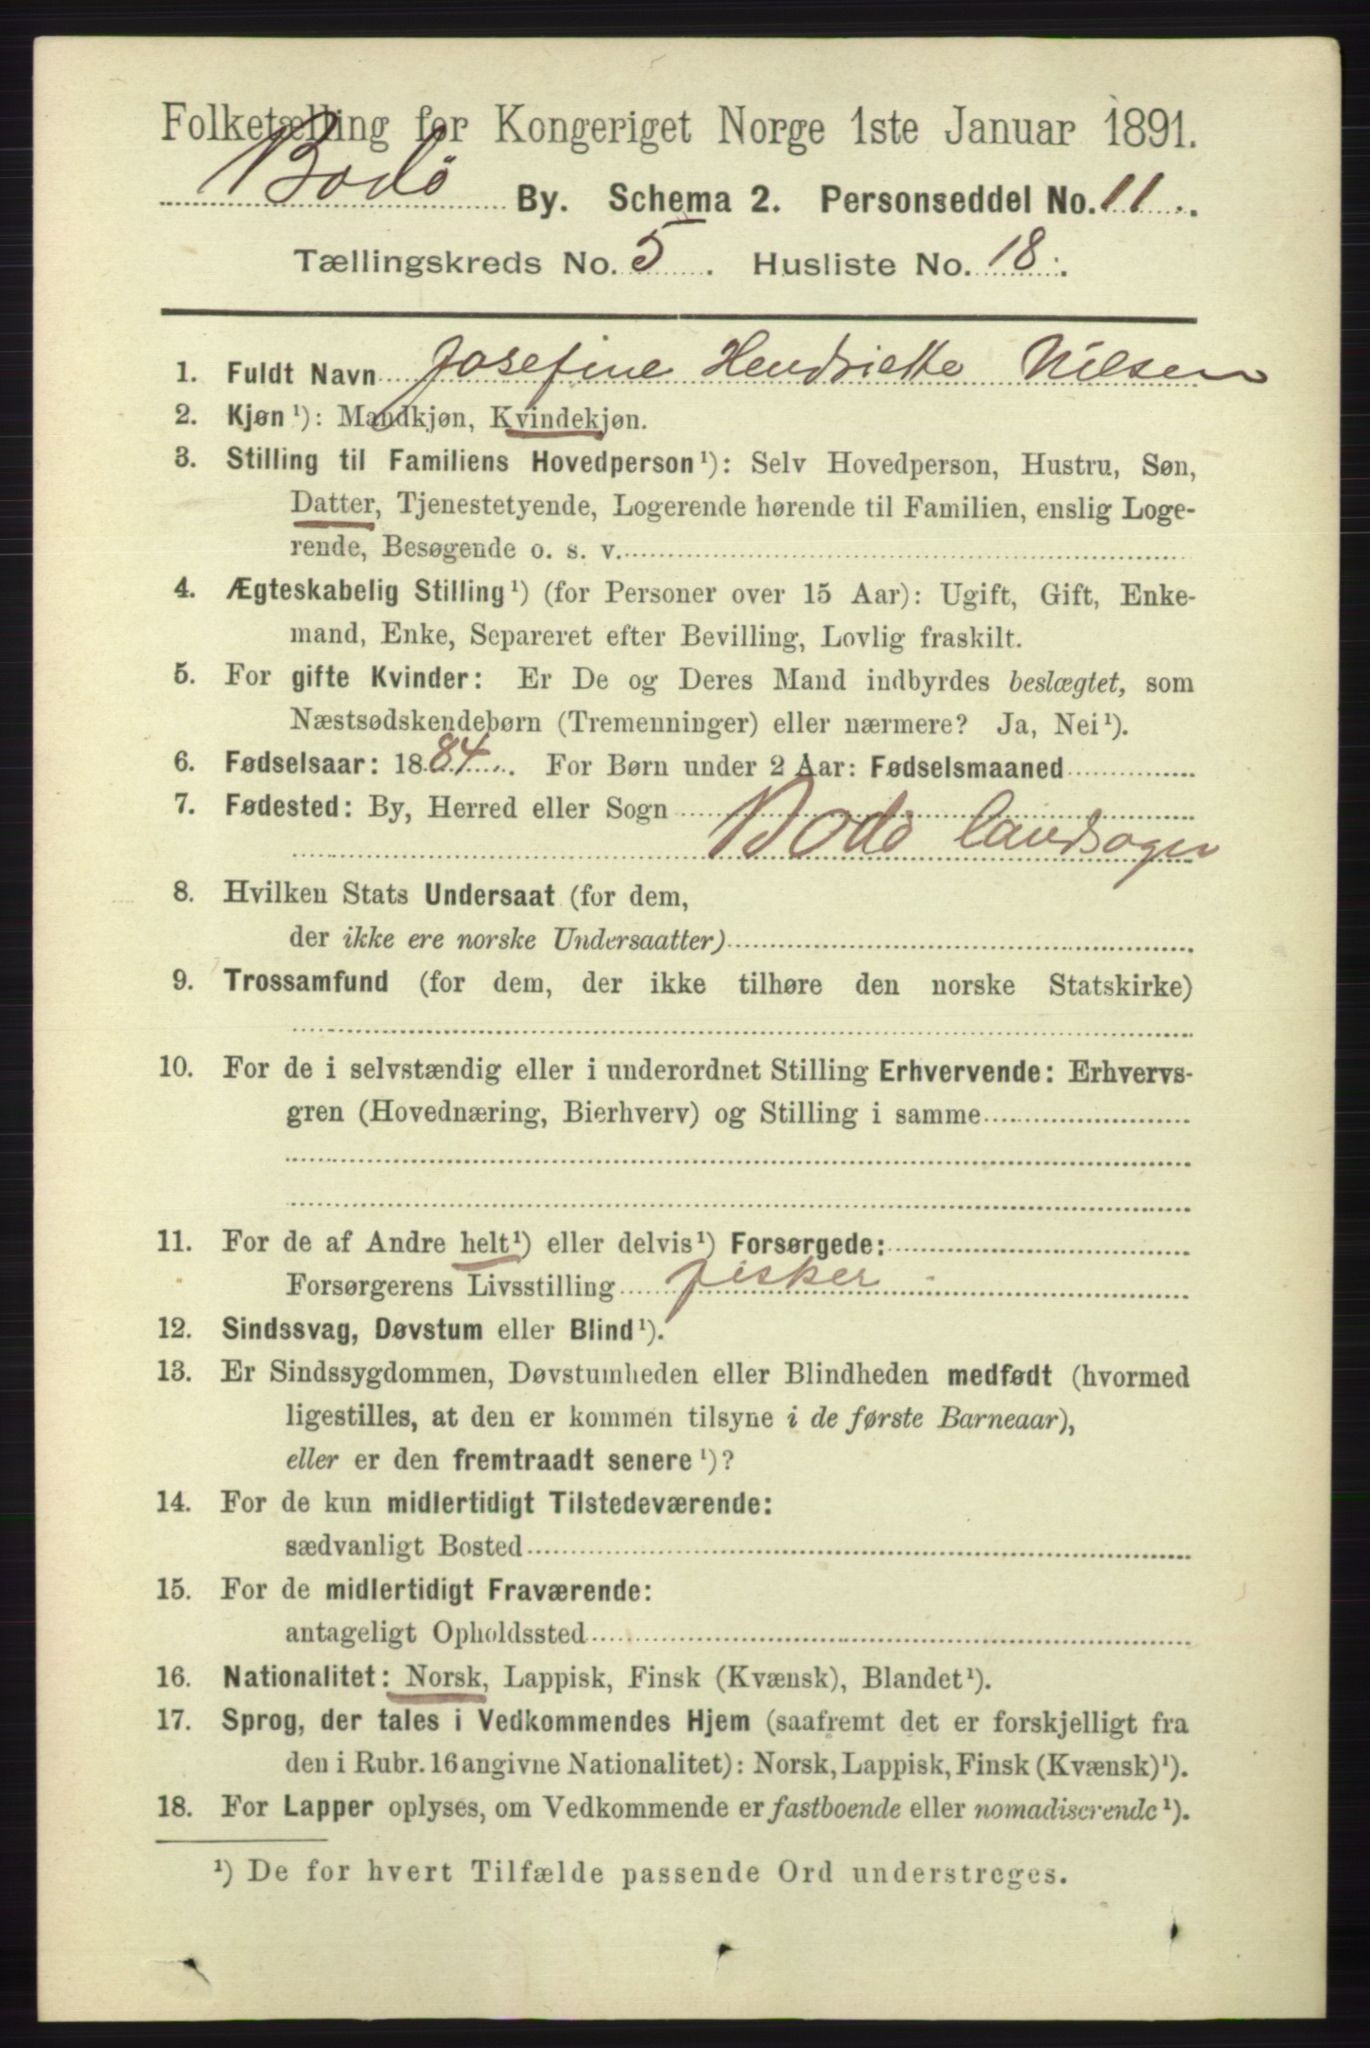 Folketælling for Kongeriget Norge 1ste Januar 1891.
Bodö By. Schema 2. Personseddel No. 11.
Tællingskreds No. 5. Husliste No. 18.
1. Fuldt Navn Josefine Hendriette Nilsen
2. Kjøn¹): Mandkjøn, Kvindekjøn.
3. Stilling til Familiens Hovedperson¹): Selv Hovedperson, Hustru, Søn,
Datter, Tjenestetyende, Logerende hørende til Familien, enslig Loge-
rende, Besøgende o. s. v.
4. Ægteskabelig Stilling¹) (for Personer over 15 Aar): Ugift, Gift, Enke-
mand, Enke, Separeret efter Bevilling, Lovlig fraskilt.
5. For gifte Kvinder: Er De og Deres Mand indbyrdes beslægtet, som
Næstsødskendebørn (Tremenninger) eller nærmere? Ja, Nei¹).
6. Fødselsaar: 1884. For Børn under 2 Aar: Fødselsmaaned
7. Fødested: By, Herred eller Sogn
Bodö landsogn
8. Hvilken Stats Undersaat (for dem,
der ikke ere norske Undersaatter)
9. Trossamfund (for dem, der ikke tilhøre den norske Statskirke)
10. For de i selvstændig eller i underordnet Stilling Erhvervende: Erhvervs-
gren (Hovednæring, Bierhverv) og Stilling i samme
11. For de af Andre helt¹) eller delvis¹) Forsørgede:
Forsørgerens Livsstilling fisker
12. Sindssvag, Døvstum eller Blind¹).
13. Er Sindssygdommen, Døvstumheden eller Blindheden medfødt (hvormed
ligestilles, at den er kommen tilsyne i de første Barneaar),
eller er den fremtraadt senere¹)?
14. For de kun midlertidigt Tilstedeværende:
sædvanligt Bosted
15. For de midlertidigt Fraværende:
antageligt Opholdssted
16. Nationalitet: Norsk, Lappisk, Finsk (Kvænsk), Blandet¹).
17. Sprog, der tales i Vedkommendes Hjem (saafremt det er forskjelligt fra
den i Rubr. 16 angivne Nationalitet): Norsk, Lappisk, Finsk (Kvænsk)¹).
18. For Lapper oplyses, om Vedkommende er fastboende eller nomadiserende¹).
¹) De for hvert Tilfælde passende Ord understreges.